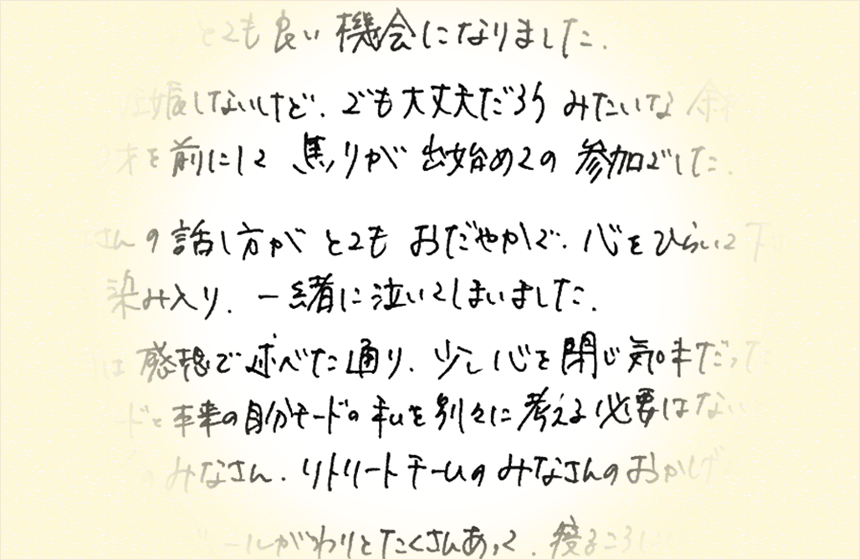 とても良い機会になりました.
妊娠しないけど、でも大丈夫だろう みたいな 余
才を前にして 焦りが出始めての 参加でした.
さんの話し方が とても おだやかで、心をひらいて下
染み入り、一緒に泣いてしまいました.
は感想で述べた通り、少し心を閉じ気味だった
ードと本来の自分モードの私を別々に考える必要はない
のみなさん、リトリートチームのみなさんのおかげ
ールがわりとたくさんあって、疲るころ